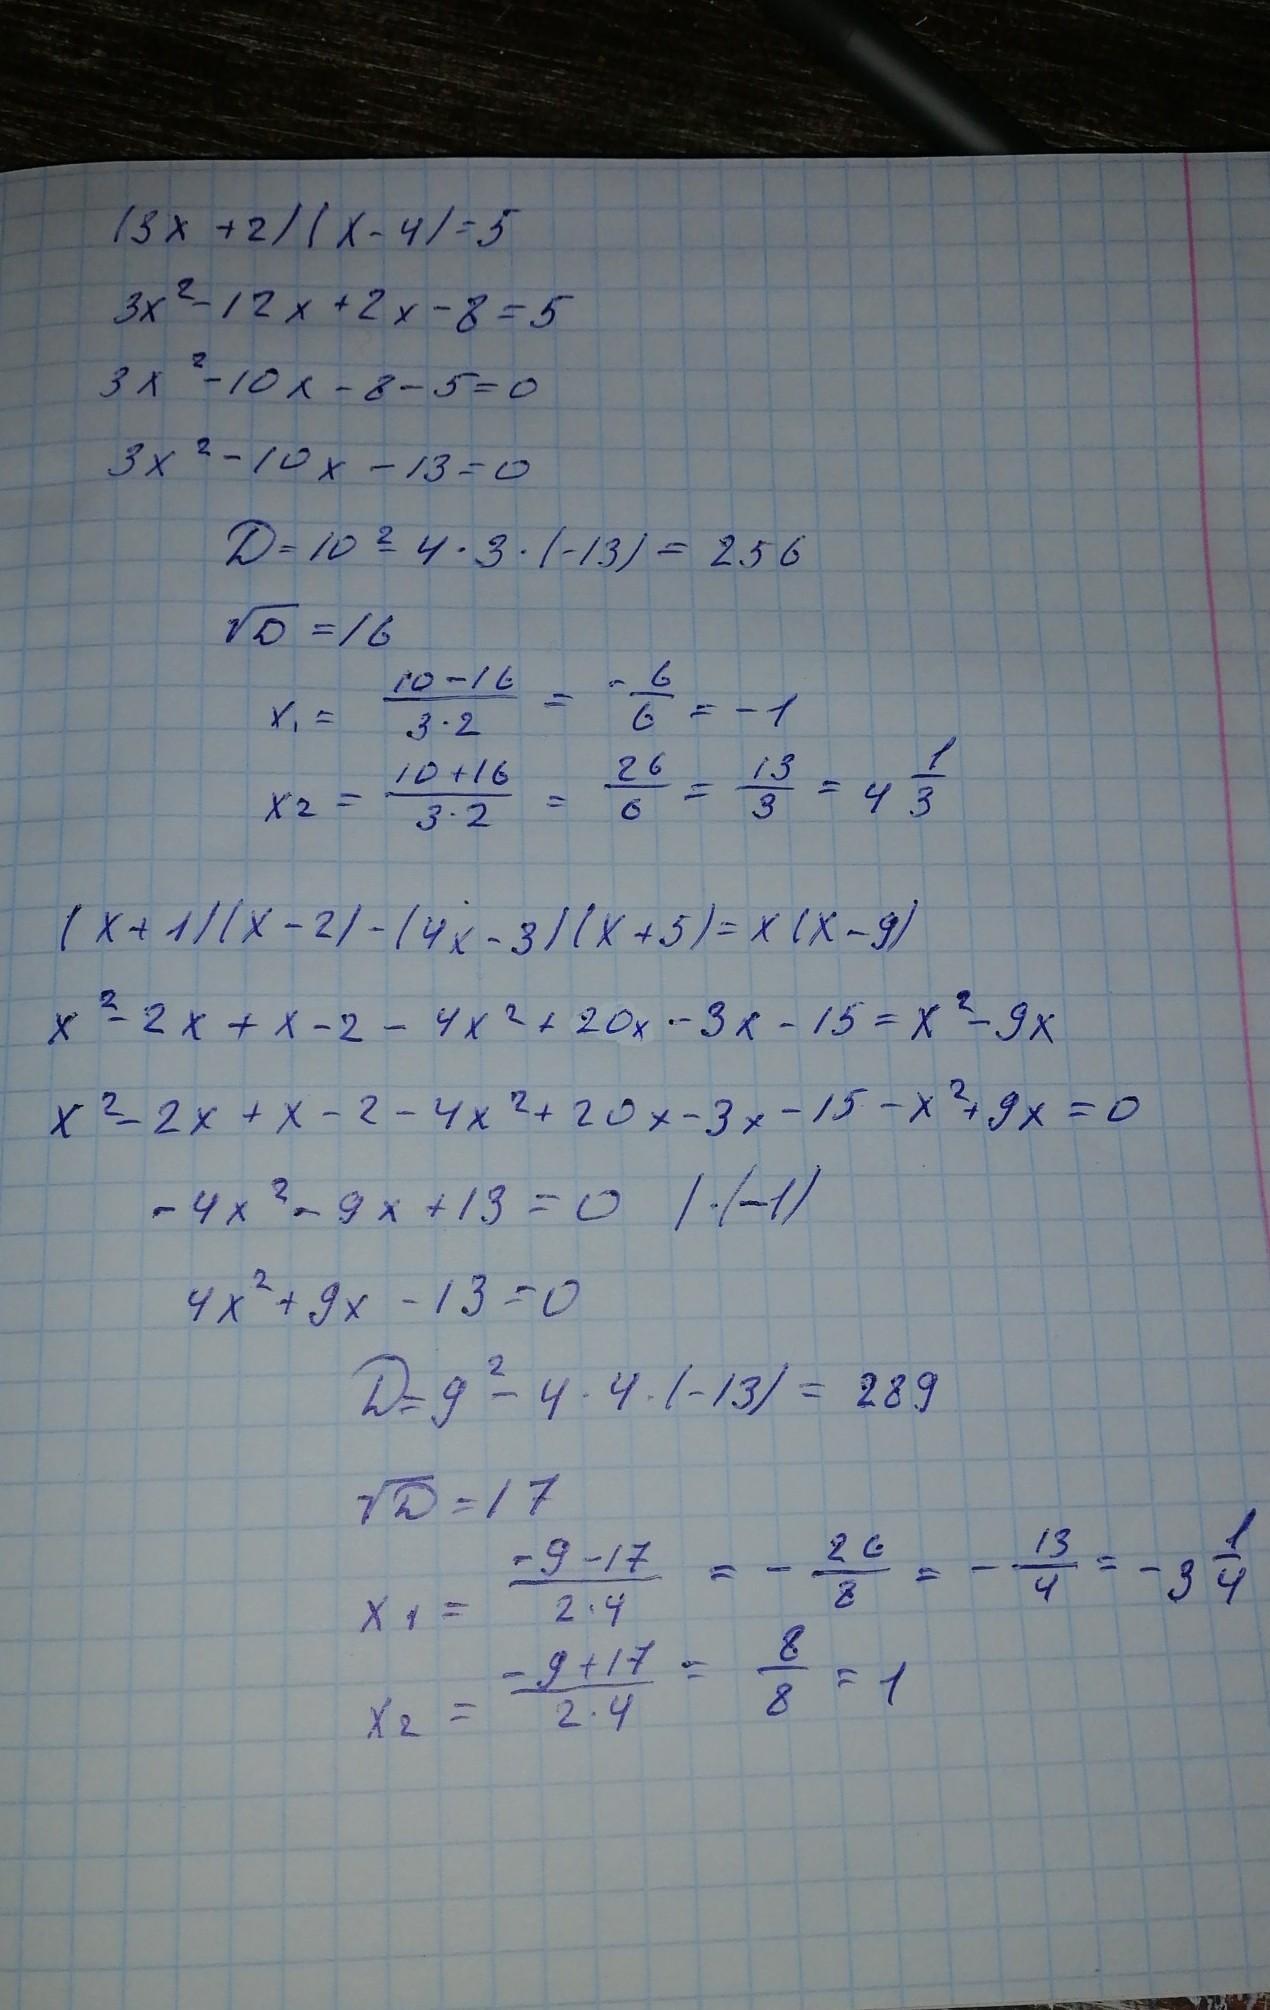 (3x + 2)(x - 4) = 5
3x² - 12x + 2x - 8 = 5
3x² - 10x - 8 - 5 = 0
3x² - 10x - 13 = 0
D = 10² - 4 · 3 · (-13) = 256
√D = 16
x₁ = (10 - 16)/(3 · 2) = -6/6 = -1
x₂ = (10 + 16)/(3 · 2) = 26/6 = 13/3 = 4 1/3
(x + 1)(x - 2) - (4x - 3)(x + 5) = x(x - 9)
x² - 2x + x - 2 - 4x² + 20x - 3x - 15 = x² - 9x
x² - 2x + x - 2 - 4x² + 20x - 3x - 15 - x² + 9x = 0
-4x² - 9x + 13 = 0 | · (-1)
4x² + 9x - 13 = 0
D = 9² - 4 · 4 · (-13) = 289
√D = 17
x₁ = (-9 - 17)/(2 · 4) = -26/8 = -13/4 = -3 1/4
x₂ = (-9 + 17)/(2 · 4) = 8/8 = 1